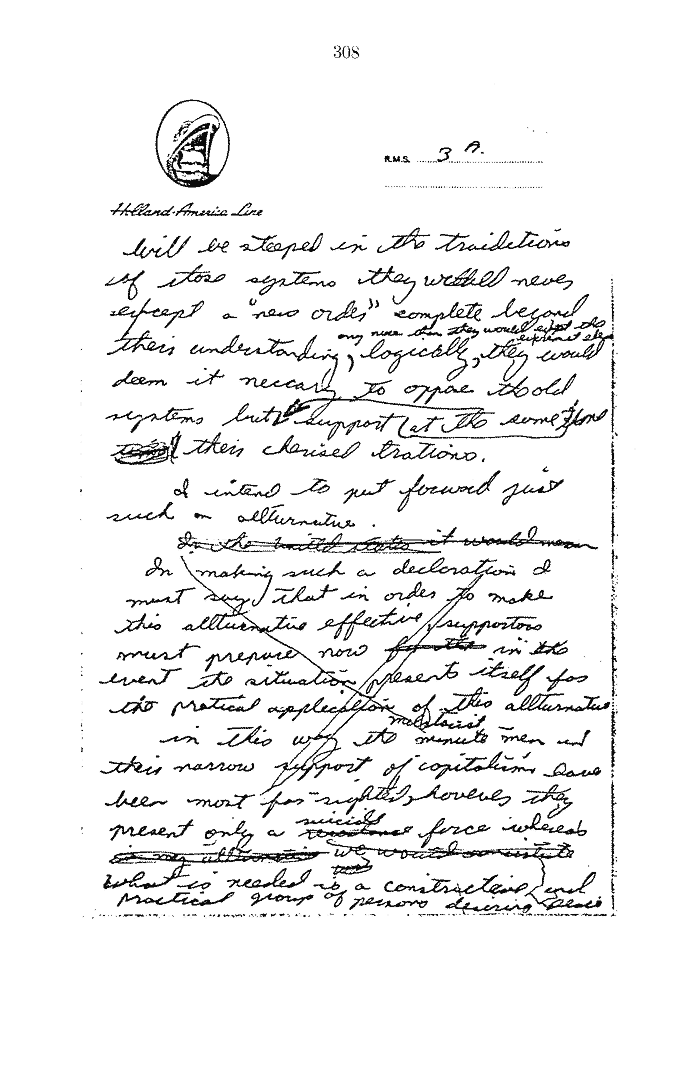 308
R.M.S. 3 A.
Holland-America Line
will be steeped in the traiditions
of those systems they would never
except a "new order" complete beyond
any more than they would
their understanding, logically, they would
deem it neccary to oppose the old
systems but support at the same time
their cherised trations.
I intend to put forward just
such an allturnative.
In the united states it would mean
In making such a declaration I
must say that in order to make
this allturnative effective supportors
must prepare now in the
event the situation presents itself for
the pratical application of this allturnative
in this way the minute men and
their narrow support of capitalism have
been most far-sighted, however they
suicide
present only a force whereas
we would
what is needed is a constructive and
practical group of persons desiring peace